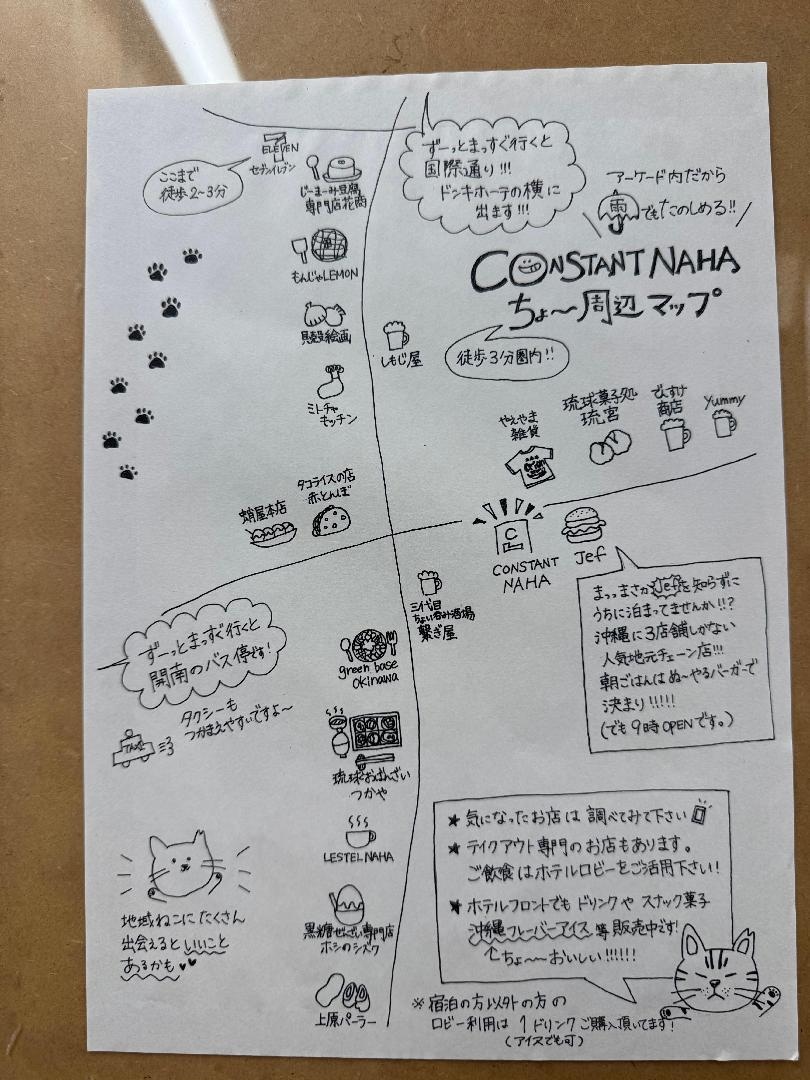 ELEVEN
セブンイレブン
ここまで
徒歩2〜3分
じーまーみ豆腐
専門店花商
もんじゃLEMON
貝殻絵画
ミトチャ
キッチン
しもじ屋
ずーっとまっすぐ行くと
国際通り!!!
ドンキホーテの横に
出ます!!!
アーケード内だから
雨でもたのしめる!!
CONSTANT NAHA
ちょ〜周辺マップ
徒歩3分圏内!!
やえやま
雑貨
琉球菓子処
琉宮
でんすけ
商店
Yummy
タコライスの店
赤とんぼ
蛸屋本店
C
CONSTANT
NAHA
Jef
まっ、まさかJefを知らずに
うちに泊まってませんか!!?
沖縄に3店舗しかない
人気地元チェーン店!!!
朝ごはんはぬ〜やるバーガーで
決まり!!!!!
(でも9時OPENです。)
三代目
ちょい呑み酒場
繋ぎ屋
ずーっとまっすぐ行くと
開南のバス停です!
タクシーも
つかまえやすいですよ〜
TAXI
green base
okinawa
琉球おばんざい
つかや
LESTEL NAHA
黒糖ぜんざい専門店
ホシのシズク
上原パーラー
地域ねこにたくさん
出会えるといいこと
あるかも♥♥
★ 気になったお店は調べてみて下さい
★ テイクアウト専門のお店もあります。
ご飲食はホテルロビーをご活用下さい!
★ ホテルフロントでもドリンクやスナック菓子
沖縄フレーバーアイス等販売中です!
↑ちょ〜〜おいしい!!!!!!
※宿泊の方以外の方の
ロビー利用は1ドリンクご購入頂いてます!
(アイスでも可)